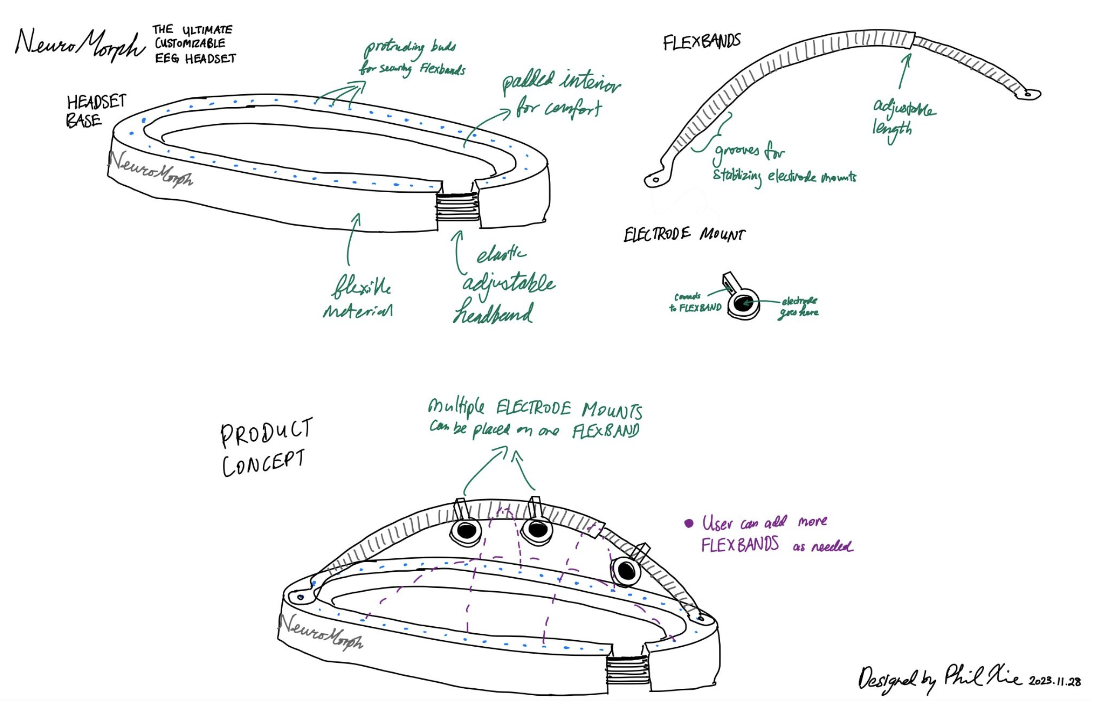 NeuroMorph
THE ULTIMATE
CUSTOMIZABLE
EEG HEADSET
HEADSET
BASE
protruding buds
for securing Flexbands
padded interior
for comfort
NeuroMorph
flexible
material
elastic
adjustable
headband
FLEXBANDS
adjustable
length
grooves for
stabilizing electrode mounts
ELECTRODE MOUNT
connects
to FLEXBAND
electrode
goes here
PRODUCT
CONCEPT
multiple ELECTRODE MOUNTS
can be placed on one FLEXBAND
• User can add more
FLEXBANDS as needed
NeuroMorph
Designed by Phil Xie 2023.11.28